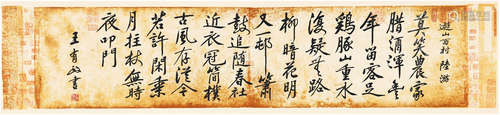 遊山西村 陸游
莫笑農家
腊酒渾豐
年留客足
鷄豚山重水
復疑無路
柳暗花明
又一邨簫
鼓追隨春社
近衣冠簡樸
古風存從今
若許閑乘
月拄杖無時
夜叩門